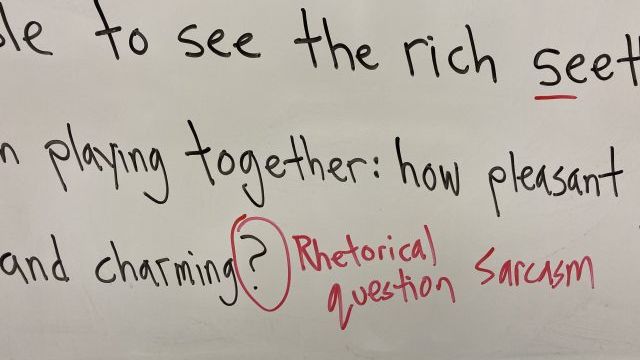 le to see the rich seet
n playing together: how pleasant
and charming? Rhetorical question Sarcasm